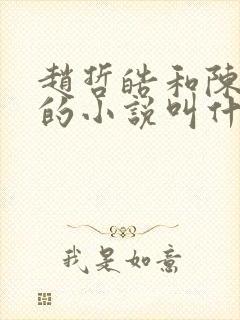 趙哲皓和陳
的小説叫什
我是如意